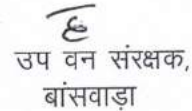 उप वन संरक्षक,
बांसवाड़ा